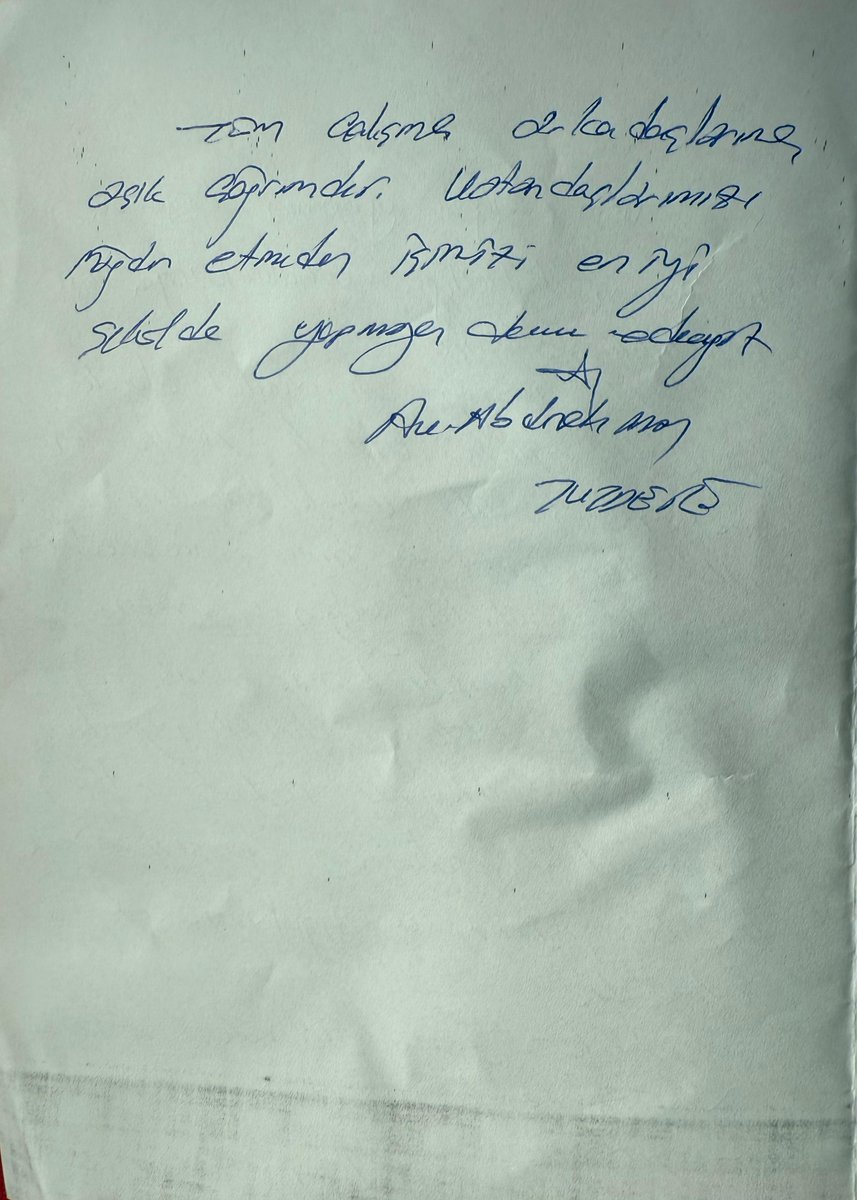 Tüm çalışma arkadaşlarıma
açık çağrımdır. Vatandaşlarımızı
mağdur etmeden işimizi en iyi
şekilde yapmaya devam ediyoruz
Av. Abdurrahman
TUTDERE